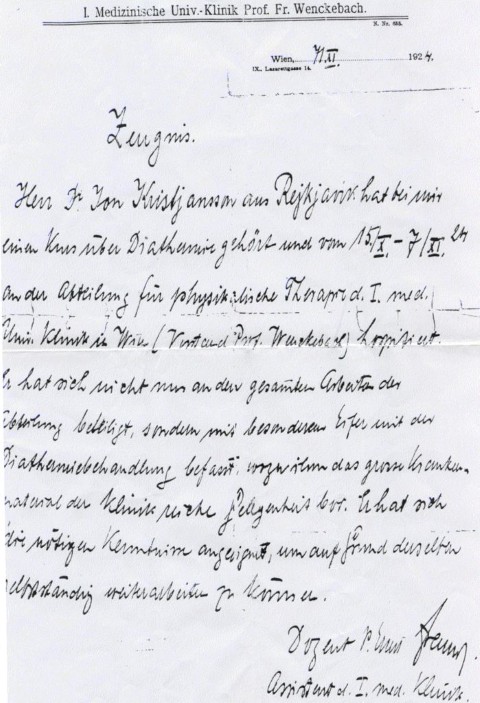 I. Medizinische Univ.-Klinik Prof. Fr. Wenckebach.
S. Nr. 685.
Wien, 7/XI. 1924.
IX., Lazarettgasse 14.
Zeugnis.
Herr Dr. Jon Kristjansson aus Rejkjavik hat bei mir
einen Kurs über Diathermie gehört und vom 15/X. – 7/XI. 24
an der Abteilung für physikalische Therapie d. I. med.
Univ. Klinik in Wien (Vorstand Prof. Wenckebach) hospitiert.
Er hat sich nicht nur an den gesamten Arbeiten der
Abteilung beteiligt, sondern mit besonderem Eifer mit der
Diathermiebehandlung befasst, wozu ihm das grosse Kranken-
material der Klinik reiche Gelegenheit bot. Er hat sich
die nötigen Kenntnisse angeeignet, um auf Grund derselben
selbstständig weiterarbeiten zu können.
Dozent
Assistent d. I. med. Klinik.